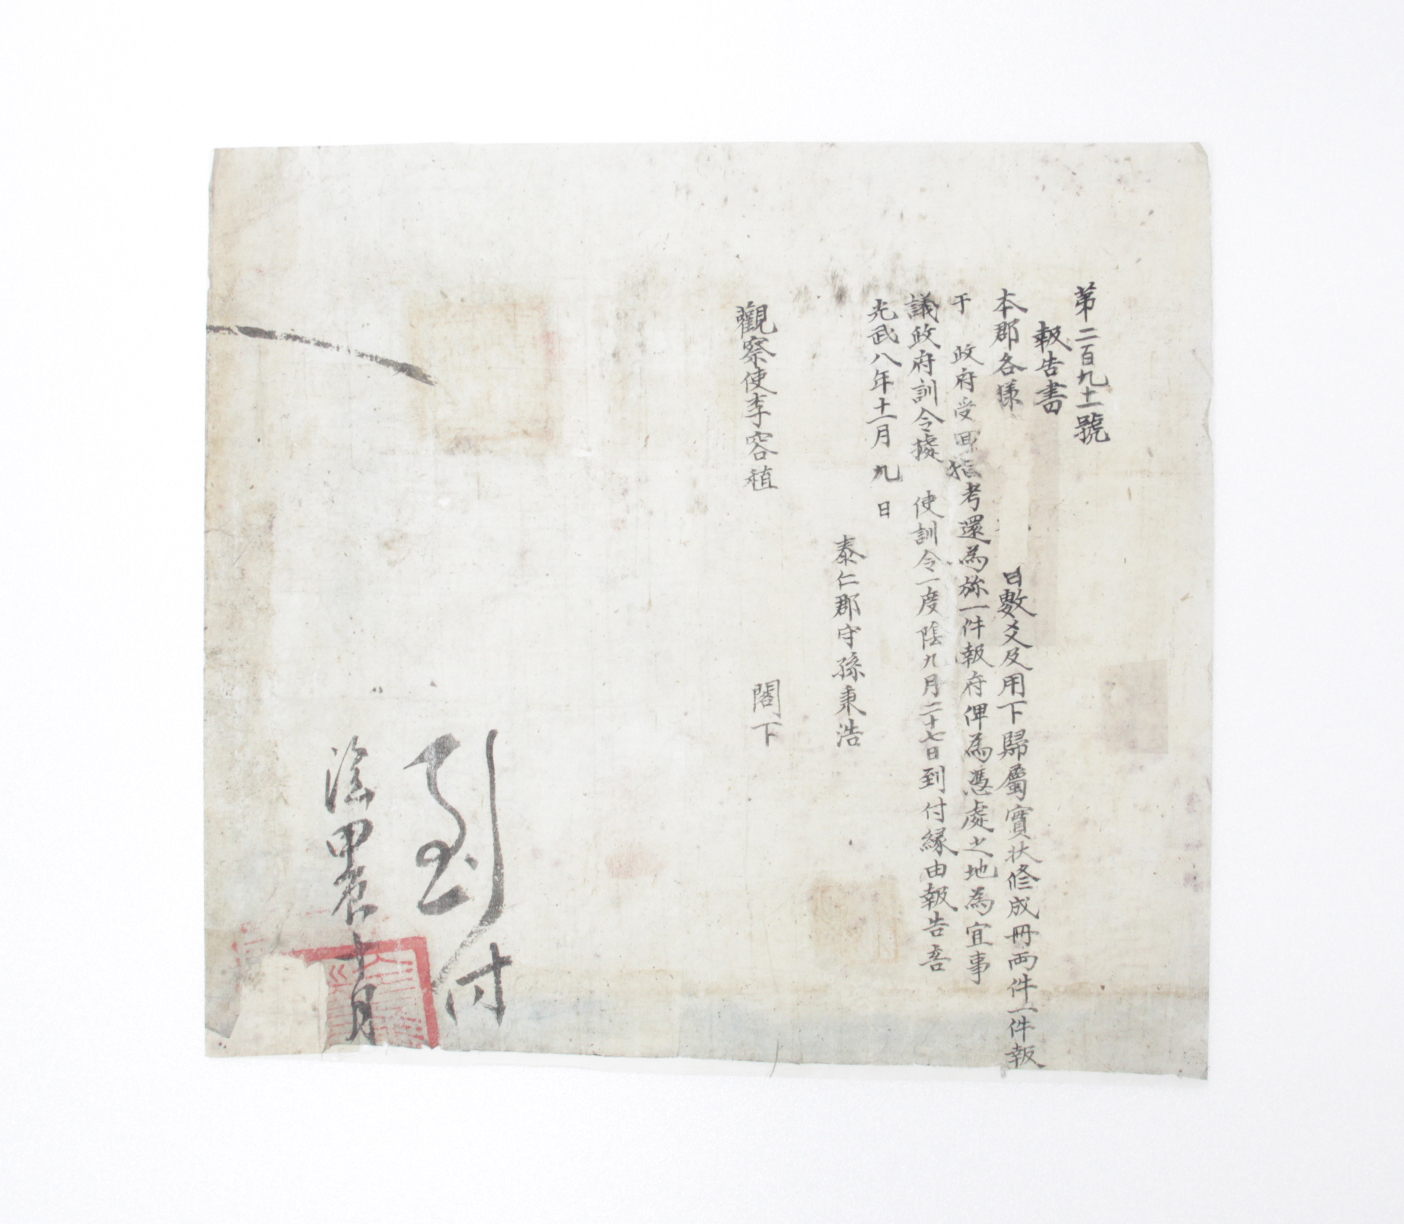 第二百九十一號
報告書
本郡各樣 目數爻及用下歸屬實狀修成冊兩件一件報
于 政府受回 考還為旀一件報府俾為憑處之地為宜事
議政府訓令據 使訓令一度陰九月二十七日到付緣由報告
光武八年十一月九日
泰仁郡守孫秉浩
觀察使李容稙 閣下
到付
陰甲辰十月